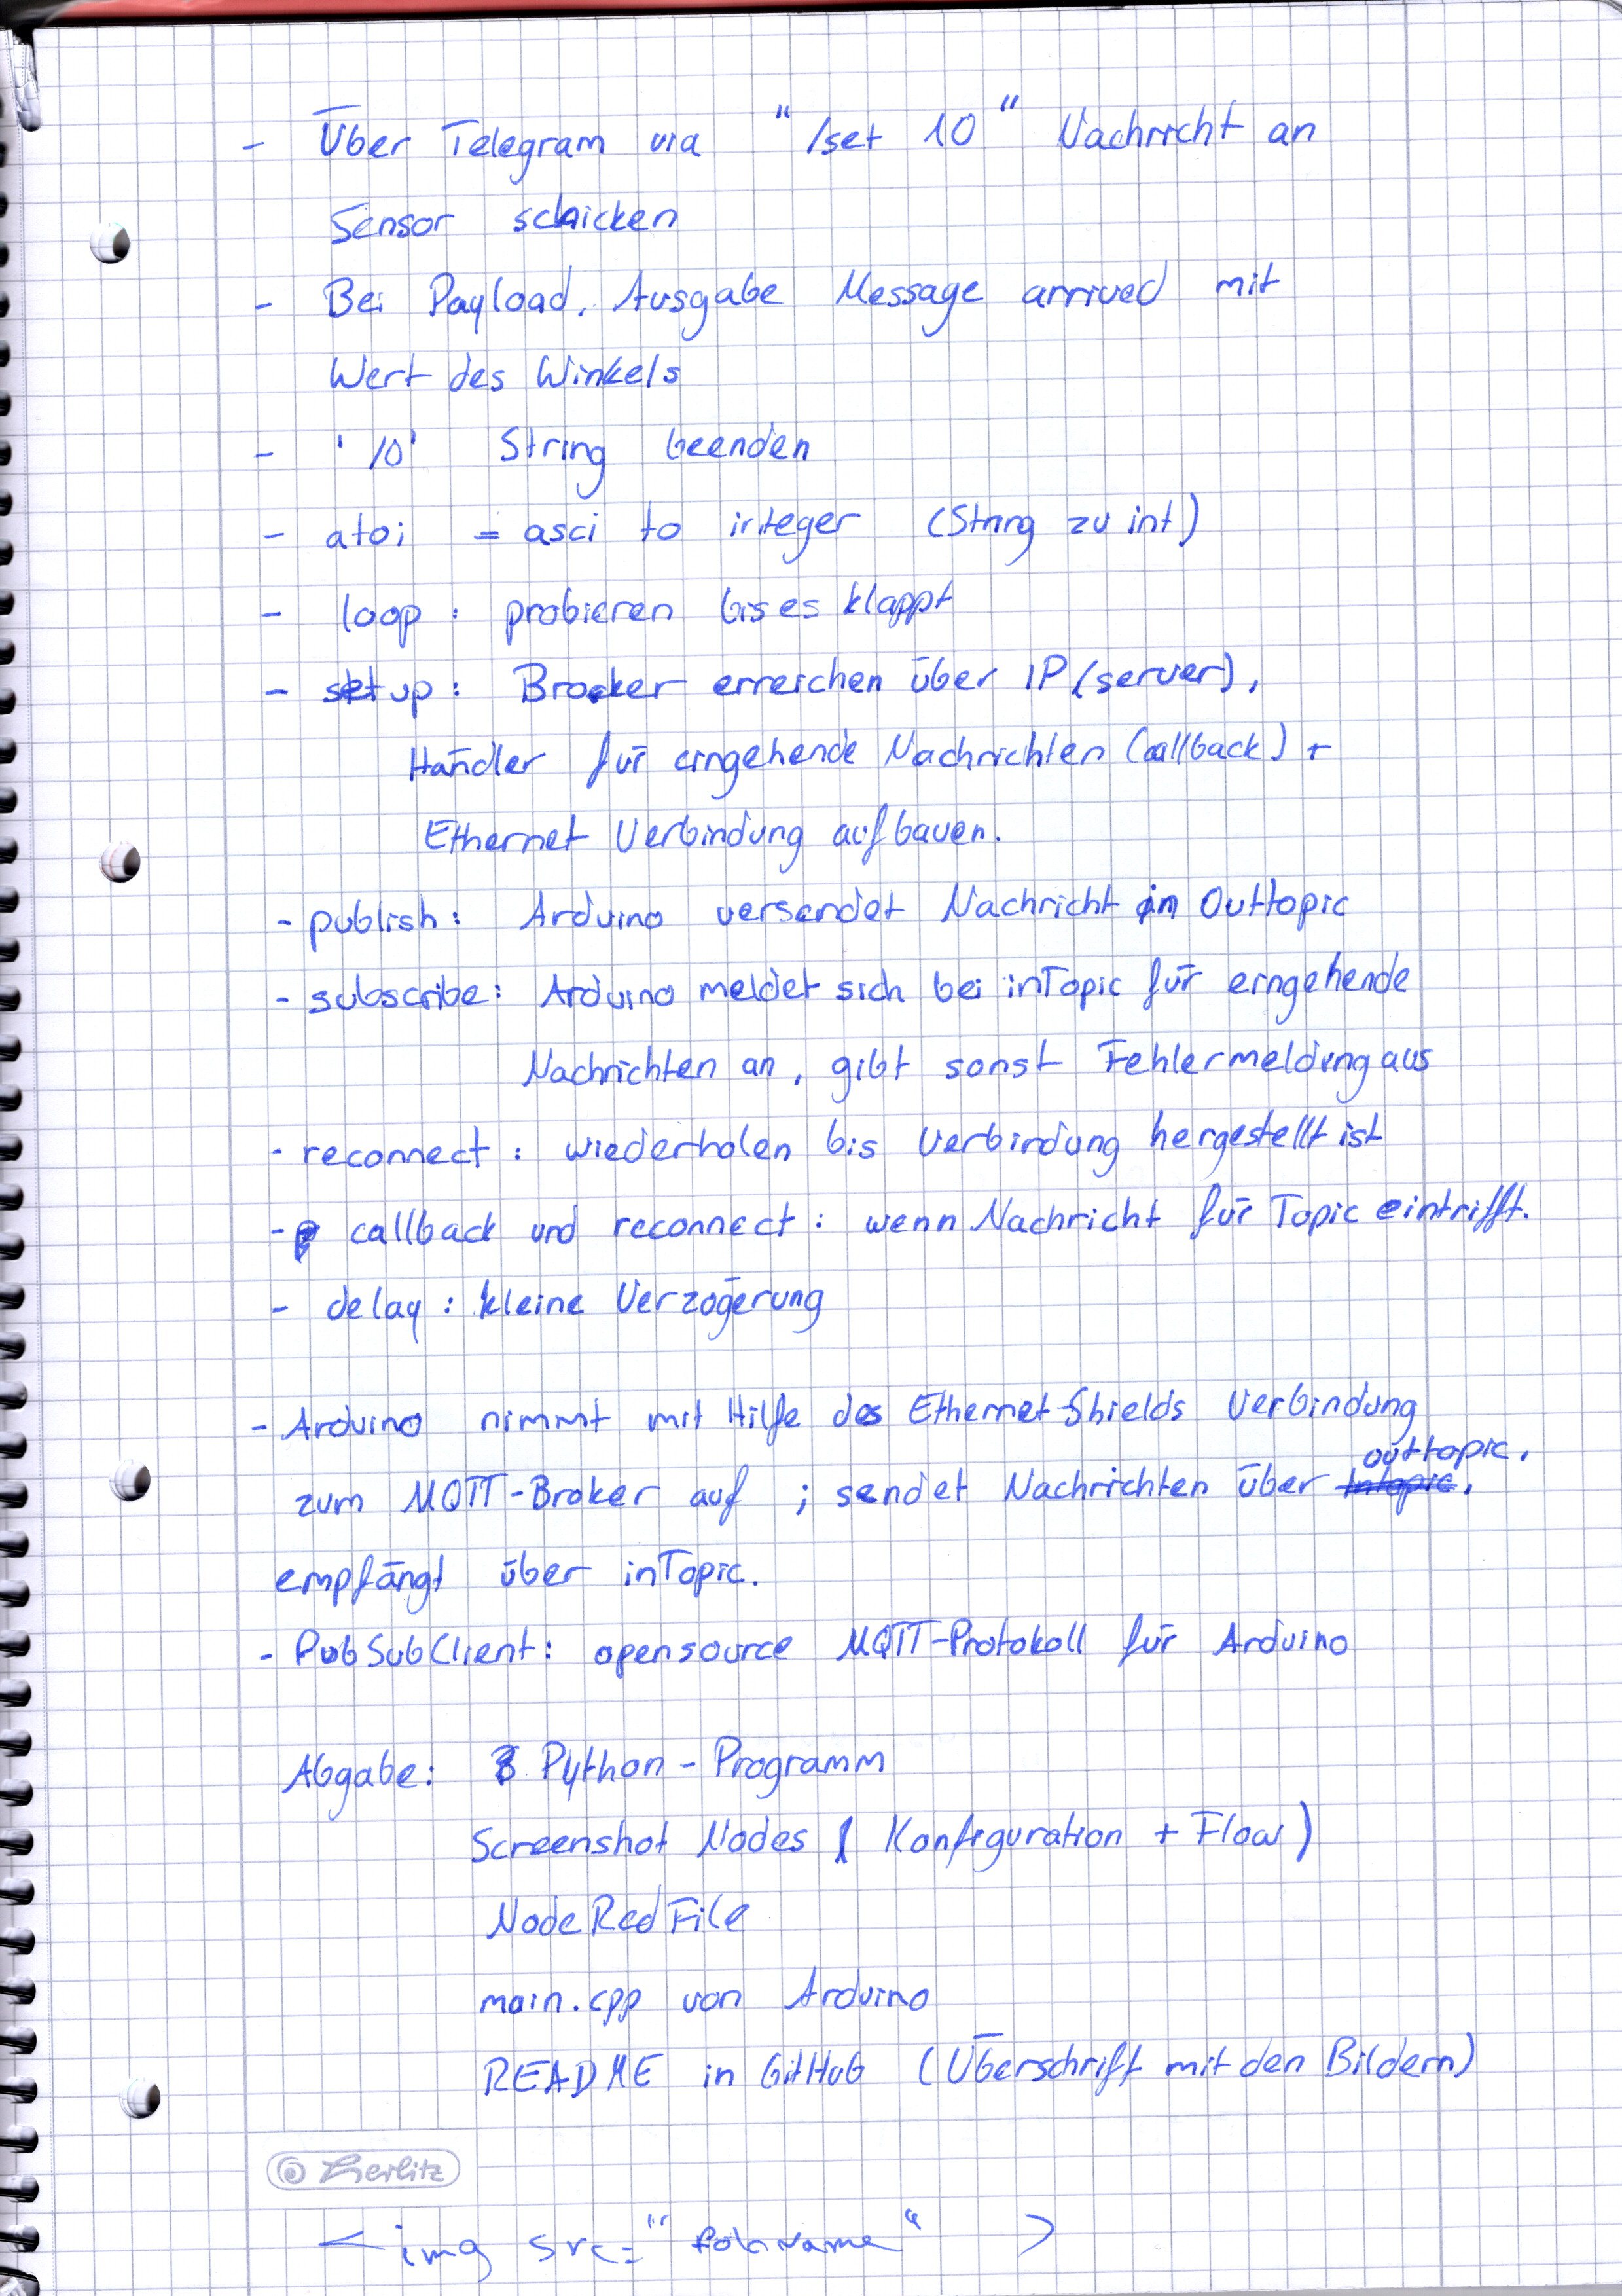 - Über Telegram via "/set 10" Nachricht an
Sensor schicken
- Bei Payload, Ausgabe Message arrived mit
Wert des Winkels
- '/0' String beenden
- atoi = asci to integer (String zu int)
- loop: probieren bis es klappt
- setup: Brocker erreichen über IP (server),
Händler für eingehende Nachrichten (callback) +
Ethernet Verbindung aufbauen.
- publish: Arduino versendet Nachricht in Outtopic
- subscribe: Arduino meldet sich bei inTopic für eingehende
Nachrichten an, gibt sonst Fehlermeldung aus
- reconnect: wiederholen bis Verbindung hergestellt ist
- callback und reconnect: wenn Nachricht für Topic eintrifft.
- delay: kleine Verzögerung
- Arduino nimmt mit Hilfe des Ethernet-Shields Verbindung
outtopic.
zum MQTT-Broker auf ; sendet Nachrichten über Intopic.
empfängt über inTopic.
- PubSubClient: opensource MQTT-Protokoll für Arduino
Abgabe: Python-Programm
Screenshot Nodes (Konfiguration + Flow)
NodeRedFile
main.cpp von Arduino
README in GitHub (Überschrift mit den Bildern)
© Herlitz
<img src="fotoname" >